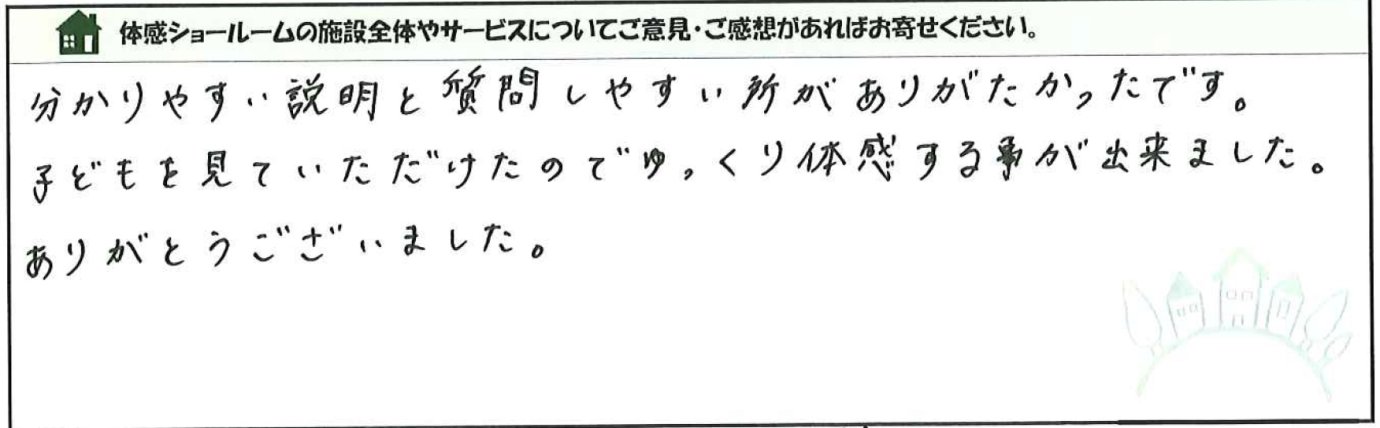 体感ショールームの施設全体やサービスについてご意見・ご感想があればお寄せください。
分かりやすい説明と質問しやすい所がありがたかったです。
子どもを見ていただけたのでゆっくり体感する事が出来ました。
ありがとうございました。